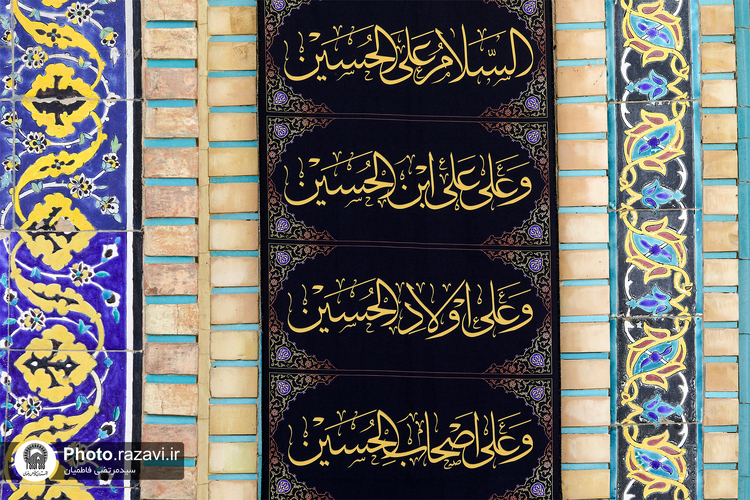 السَّلامُ عَلَی الحُسَین
وَعَلی عَلیِّ ابنِ الحُسَین
وَعَلی اَولادِ الحُسَین
وَعَلی اَصحابِ الحُسَین
Photo.razavi.ir
سیدمرتضی فاطمیان